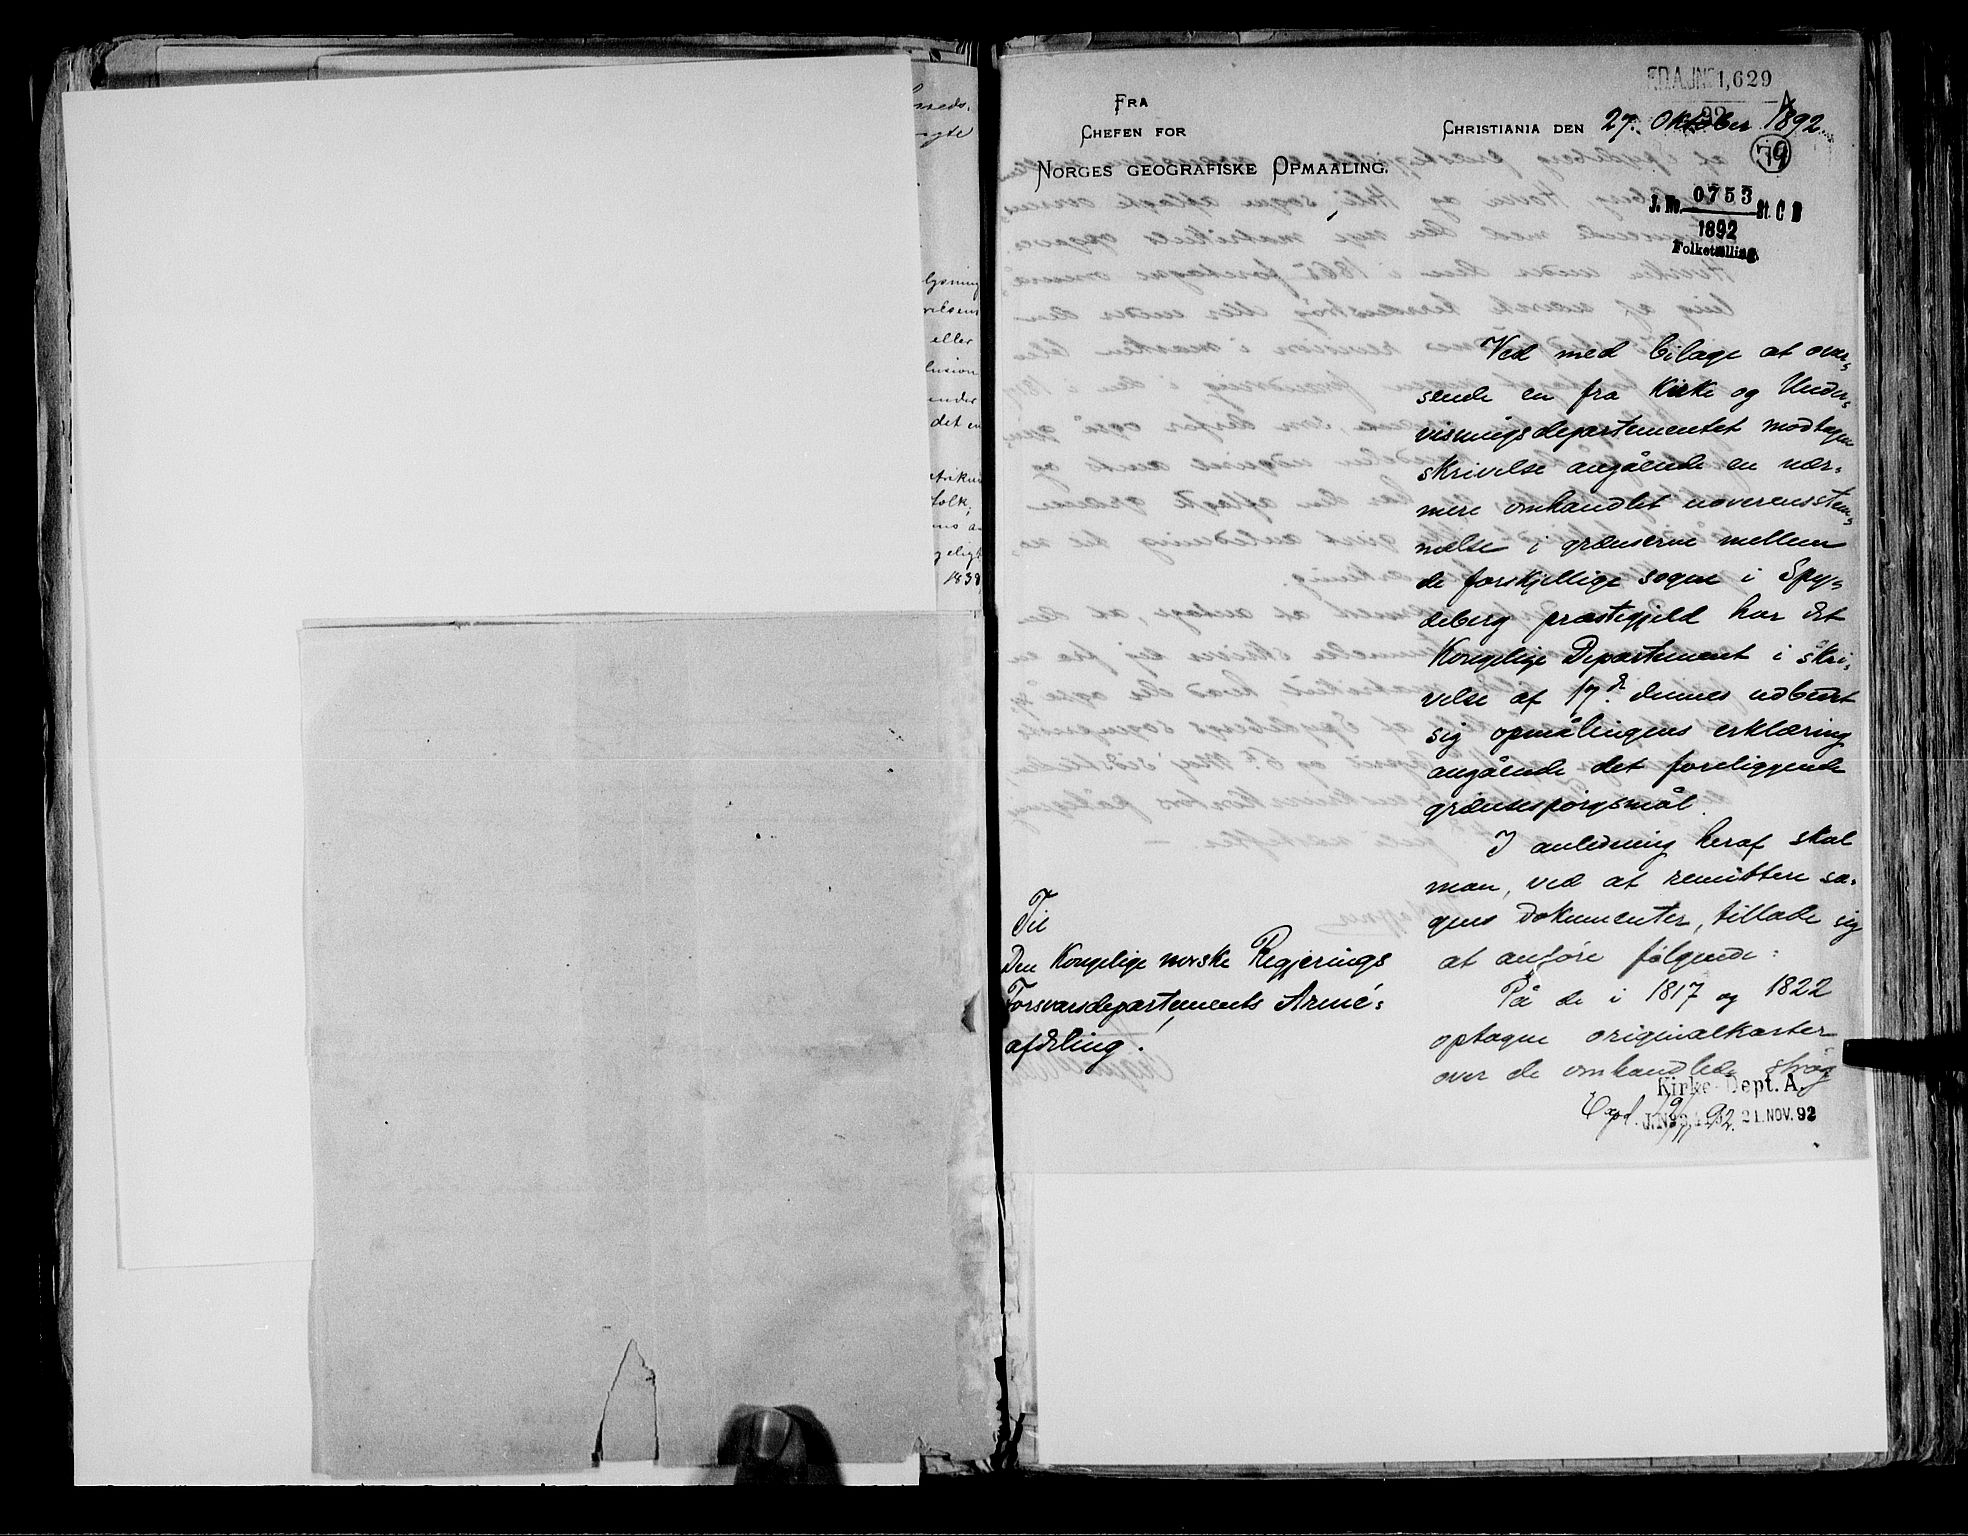 F.D.A.JNo 1,629
92 A
FRA
CHEFEN FOR
NORGES GEOGRAFISKE OPMAALING.
CHRISTIANIA DEN 27. Oktober 1892.
79
J. No. 0753 St. C B
1892
Folketælling
Ved med bilage at over-
sende en fra Kirke og Under-
visningsdepartementet modtagen
skrivelse angående en nær-
mere omhandlet uoverensstem-
melse i grænserne mellem
de forskjellige sogne i Spy-
deberg præstegjeld har det
Kongelige Departement i skri-
velse af 17de dennes udbedt
sig opmålingens erklæring
angående det foreliggende
grændsespørgsmål.
I anledning heraf skal
man, ved at remittere sa-
gens dokumenter, tillade sig
at anføre følgende:
På de i 1817 og 1822
optagne originalkarter
over de omhandlede strøg
Til
Den Kongelige norske Regjerings
Forsvarsdepartements Armé-
afdeling!
Kirke-Dept. A.
Expl. 19/11 92.
J.No 21. NOV. 92
eller
lusion
det en
folk,
1838